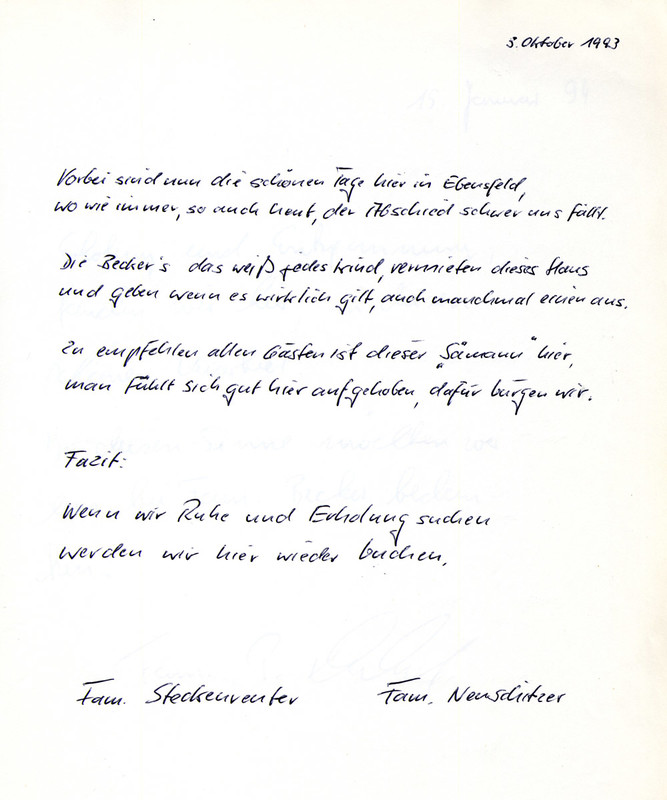 3. Oktober 1993
Vorbei sind nun die schönen Tage hier in Ebensfeld,
wo wie immer, so auch heut, der Abschied schwer uns fällt.
Die Becker's das weiß jedes Kind, vermieten dieses Haus
und geben wenn es wirklich gilt, auch manchmal einen aus.
Zu empfehlen allen Gästen ist dieser „Sämann“ hier,
man fühlt sich gut hier aufgehoben, dafür bürgen wir.
Fazit:
Wenn wir Ruhe und Erholung suchen
werden wir hier wieder buchen.
Fam. Steckenreuter Fam.